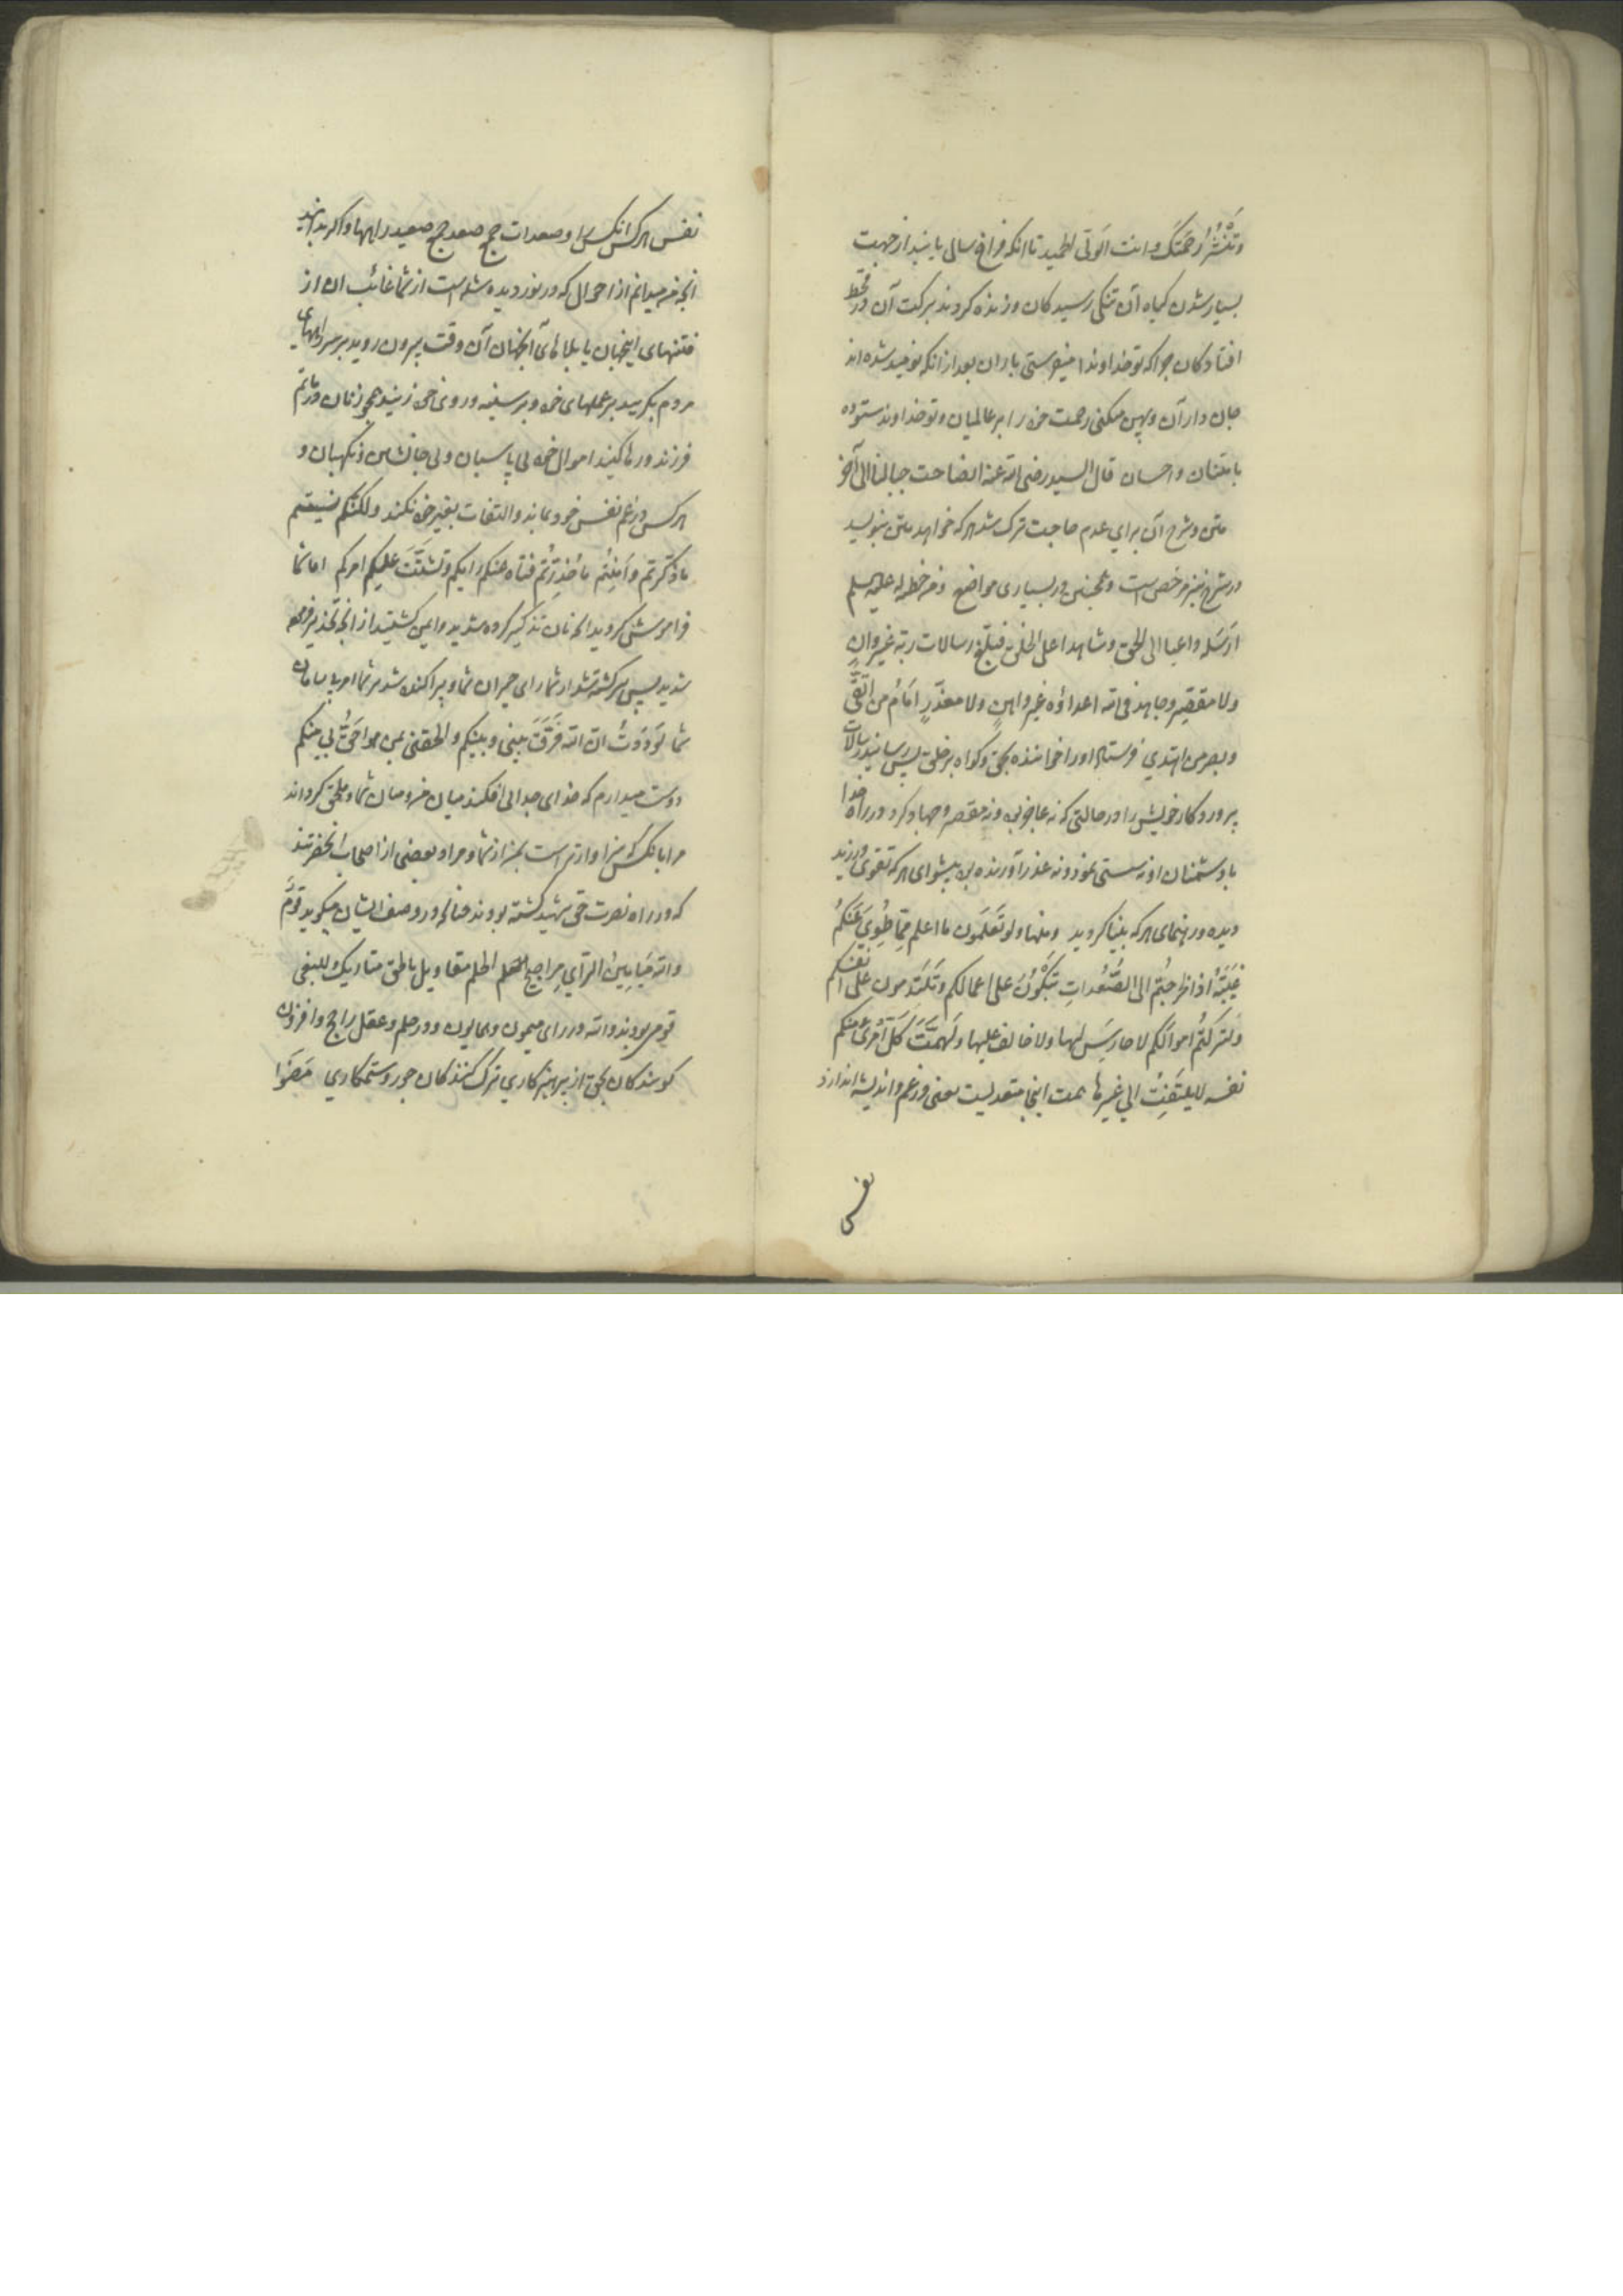 وتَنْشُرُ رَحْمَتَكَ وانت الوَلّی الحمید تا آنکه فراخ سالی یابند از جهت
بسیار شدن کیاه آن تنکی رسیدکان وزنده کردند ببرکت آن در قحط
افتادکان چرا که تو خداوندا میفرستی باران بعد از آنکه نومید شده اند
جان داران وپهن میکنی رحمت خود را بر عالمیان وتو خداوند ستوده
بامتنان واحسان قال السید رضی الله عنه انصاحت جبالنا الی آخر
متن وشرح آن برای عدم حاجت ترک شد هر که خواهد متن بنویسد
در شرح نیز مرخص است وهمچنین در بسیاری مواضع ومن خطبة له علیه السلم
ارْسَلَه داعیا الی الحق وشاهدا علی الخلق فبلّغ رسالات ربّه غیر وانٍ
ولا مقصّرٍ وجاهد فی الله اعداؤه غیر واهنٍ ولا معذّرٍ امَامُ من اتّقَی
وبصر من اهتدی فرستاد او را خواننده بحق وکواه بر خلق پس رسانید رسالات
پروردکار خویش را در حالتی که نه عاجز بود ونه مقصر وجهاد کرد در راه خدا
با دشمنان او نه سستی نمود ونه عذر آورنده بود پیشوای هر که تقوی ورزید
دیده ور رهنمای هر که بینا کردید ومنها ولو تَعْلَمون ما اعلم مِمّا طُوِیَ عَنْکُمْ
غَیْبُهُ اذا لخرجتُم الی الصُّعُداتِ تَبْکُونَ علی اعمالکم وتَلْتَدِمون علی انفسکم
ولترکتُم اموالَکم لا حارِسَ لها ولا خالف علیها ولَهَمَّتَ کلّ امْرِئٍ منکم
نفسه لا یلتَفِتُ الی غیرها همت اینجا متعدیست یعنی در غم واندیشه اندازد
نفس
نفس هر کس آنکس را وصعدات جمع صعد جمع صعید راهها واکر بدانید
آنچه من میدانم از احوال که در نوردیده شده است از شما غائب آن از
فتنهای اینجهان یا بلاهای آنجهان آن وقت بیرون روید بر سر راههای
مردم بکریید بر عملهای خود وبر سینه وروی خود زنید همچو زنان در ماتم
فرزند ورها کنید اموال خود بی پاسبان وبی جانشین ونکهبان و
هر کس در غم نفس خود بماند والتفات بغیر خود نکند ولکنّکم نسیتم
ما ذکّرتم واَمِنْتُم ما حُذِّرْتُم فتاه عنکم رایکم وتشتّتَ علیکم امرکم اما شما
فراموشی کردید آنچنان تذکیر کرده شدید وایمن کشتید از آنچه تحذیر فرموده
شدید پس سرکشته شد از شما رای حیران شما وپراکنده شد مر شما امر با سامان
شما لَوَدِدْتُ انّ الله فَرَّقَ بینی وبینکم والحقنی بمن هو احَقُّ بی منکم
دوست میدارم که خدای جدائی افکند میان من ومیان شما وملحق کرداند
مرا بانکس که سزاوارتر است بمن از شما ومراد بعضی از اصحاب آنحضرتند
که در راه نصرت حق شهید کشته بودند چنانکه در وصف ایشان میکوید قَوْمٌ
والله مَیَامِینُ الرّأی مراجیح الحلم مقاویل بالحق متاریک للبغی
قومی بودند والله در رای میمون وهمایون ودر حلم وعقل راجح وافزون
کویندکان بحق از پرهیزکاری ترک کنندکان جور وستمکاری مَضَوْا